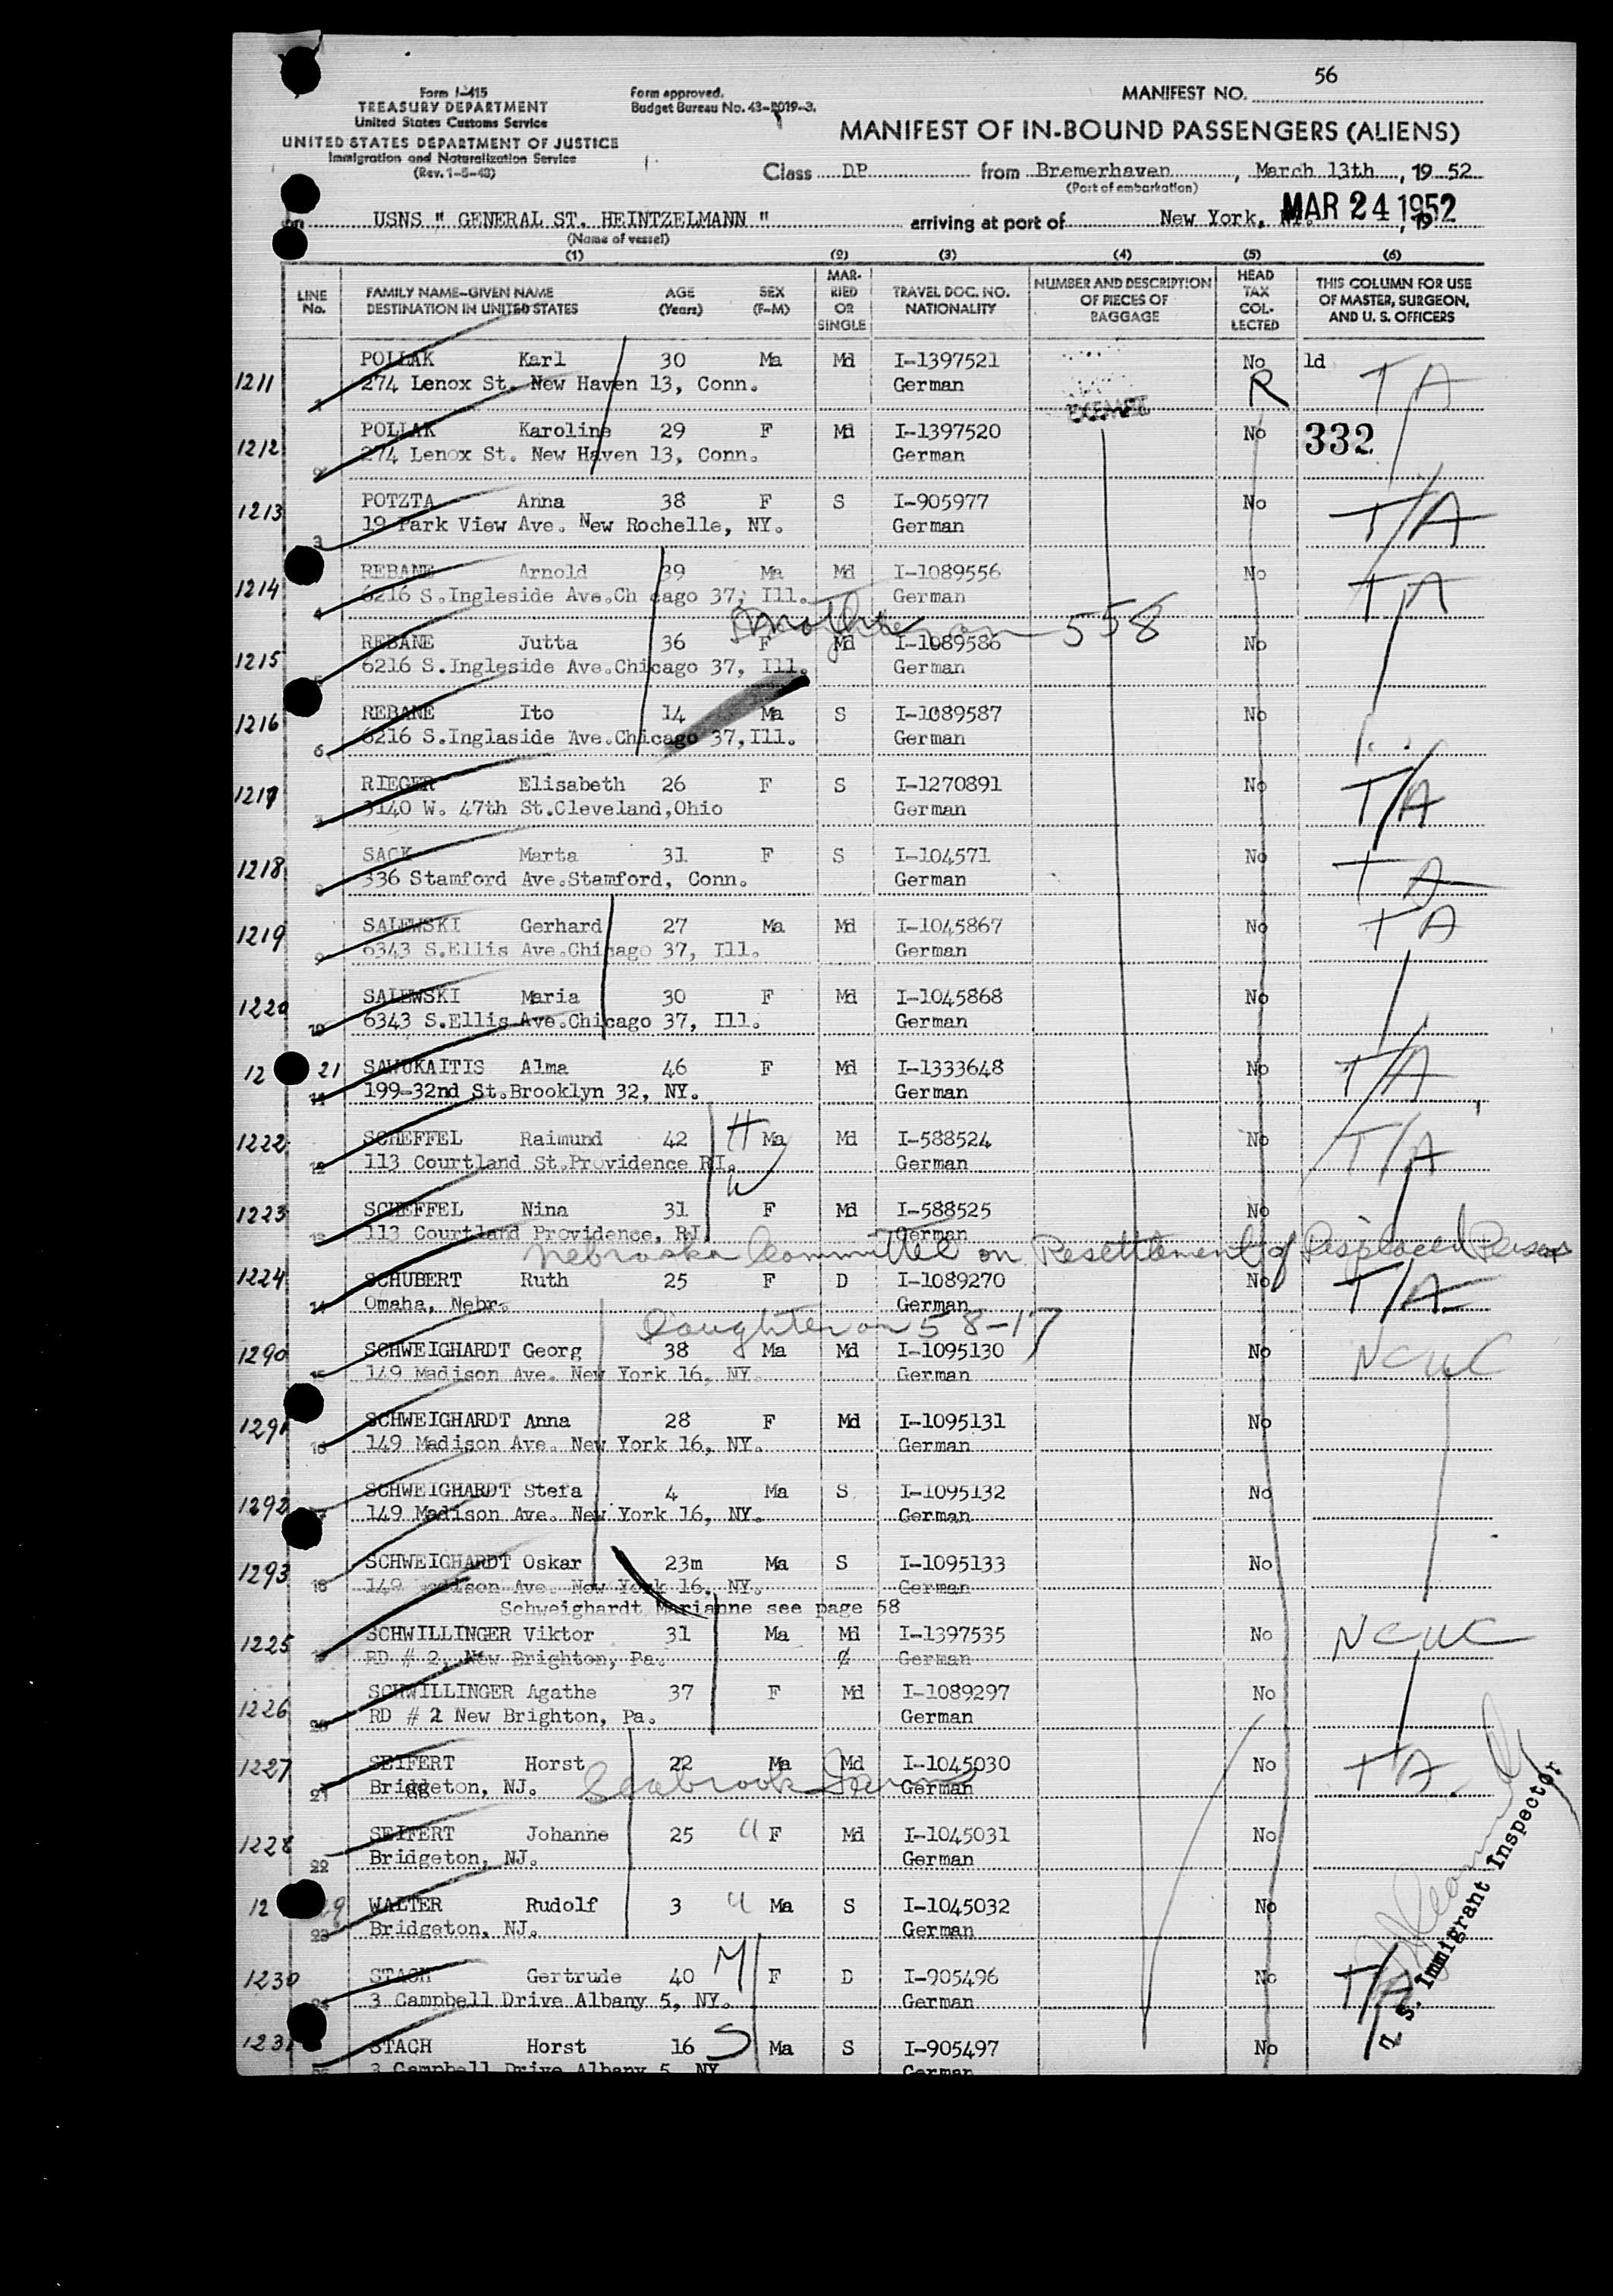 56
Form I-415
TREASURY DEPARTMENT
United States Customs Service
UNITED STATES DEPARTMENT OF JUSTICE
Immigration and Naturalization Service
(Rev. 1-5-48)
Form approved.
Budget Bureau No. 43-R019-3.
MANIFEST NO.
MANIFEST OF IN-BOUND PASSENGERS (ALIENS)
Class DP from Bremerhaven, March 13th, 19 52
(Port of embarkation)
on USNS " GENERAL ST. HEINTZELMANN " arriving at port of New York, NY. MAR 24 1952, 19
(Name of vessel)
(1) (2) (3) (4) (5) (6)
LINE No. FAMILY NAME–GIVEN NAME DESTINATION IN UNITED STATES AGE (Years) SEX (F–M) MARRIED OR SINGLE TRAVEL DOC. NO. NATIONALITY NUMBER AND DESCRIPTION OF PIECES OF BAGGAGE HEAD TAX COLLECTED THIS COLUMN FOR USE OF MASTER, SURGEON, AND U. S. OFFICERS
1211 POLLAK Karl 30 Ma Md I-1397521 No ld T A
1 274 Lenox St. New Haven 13, Conn. German R
1212 POLLAK Karoline 29 F Md I-1397520 No 332
2 274 Lenox St. New Haven 13, Conn. German
1213 POTZTA Anna 38 F S I-905977 No T/A
3 19 Park View Ave. New Rochelle, NY. German
1214 REBANE Arnold 39 Ma Md I-1089556 No T A
4 6216 S.Ingleside Ave.Ch cago 37, Ill. German
Mother on 558
1215 REBANE Jutta 36 F Md I-1089586 No
5 6216 S.Ingleside Ave.Chicago 37, Ill. German
1216 REBANE Ito 14 Ma S I-1089587 No
6 6216 S.Inglaside Ave.Chicago 37,Ill. German
1217 RIEGER Elisabeth 26 F S I-1270891 No T/A
7 3140 W. 47th St.Cleveland,Ohio German
1218 SACK Marta 31 F S I-104571 No T A
8 336 Stamford Ave.Stamford, Conn. German
1219 SALEWSKI Gerhard 27 Ma Md I-1045867 No T A
9 6343 S.Ellis Ave.Chicago 37, Ill. German
1220 SALEWSKI Maria 30 F Md I-1045868 No
10 6343 S.Ellis Ave.Chicago 37, Ill. German
12 21 SAWUKAITIS Alma 46 F Md I-1333648 No T/A
11 199-32nd St.Brooklyn 32, NY. German
1222 SCHEFFEL Raimund 42 H Ma Md I-588524 No T/A
12 113 Courtland St.Providence RI. W German
1223 SCHEFFEL Nina 31 F Md I-588525 No
13 113 Courtland Providence, RI German
Nebraska Committee on Resettlement of Displaced Persons
1224 SCHUBERT Ruth 25 F D I-1089270 No T/A
14 Omaha, Nebr. German
Daughter on 58-17
1290 SCHWEIGHARDT Georg 38 Ma Md I-1095130 No NCWC
15 149 Madison Ave. New York 16, NY. German
1291 SCHWEIGHARDT Anna 28 F Md I-1095131 No
16 149 Madison Ave. New York 16, NY. German
1292 SCHWEIGHARDT Stefa 4 Ma S I-1095132 No
149 Madison Ave. New York 16, NY. German
1293 SCHWEIGHARDT Oskar 23m Ma S I-1095133 No
18 149 Madison Ave. New York 16, NY. German
Schweighardt Marianne see page 58
1225 SCHWILLINGER Viktor 31 Ma Md I-1397535 No NCWC
19 RD # 2, New Brighton, Pa. German
1226 SCHWILLINGER Agathe 37 F Md I-1089297 No
20 RD # 2 New Brighton, Pa. German
1227 SEIFERT Horst 22 Ma Md I-1045030 No T A.
21 Bridgeton, NJ. Seabrook Farms German
1228 SEIFERT Johanne 25 F Md I-1045031 No
22 Bridgeton, NJ. German
12 29 WALTER Rudolf 3 Ma S I-1045032 No
23 Bridgeton, NJ. German
1230 STACH Gertrude 40 M F D I-905496 No T/A
24 3 Campbell Drive Albany 5, NY. German
1231 STACH Horst 16 S Ma S I-905497 No
3 Campbell Drive Albany 5, NY German
U. S. Immigrant Inspector